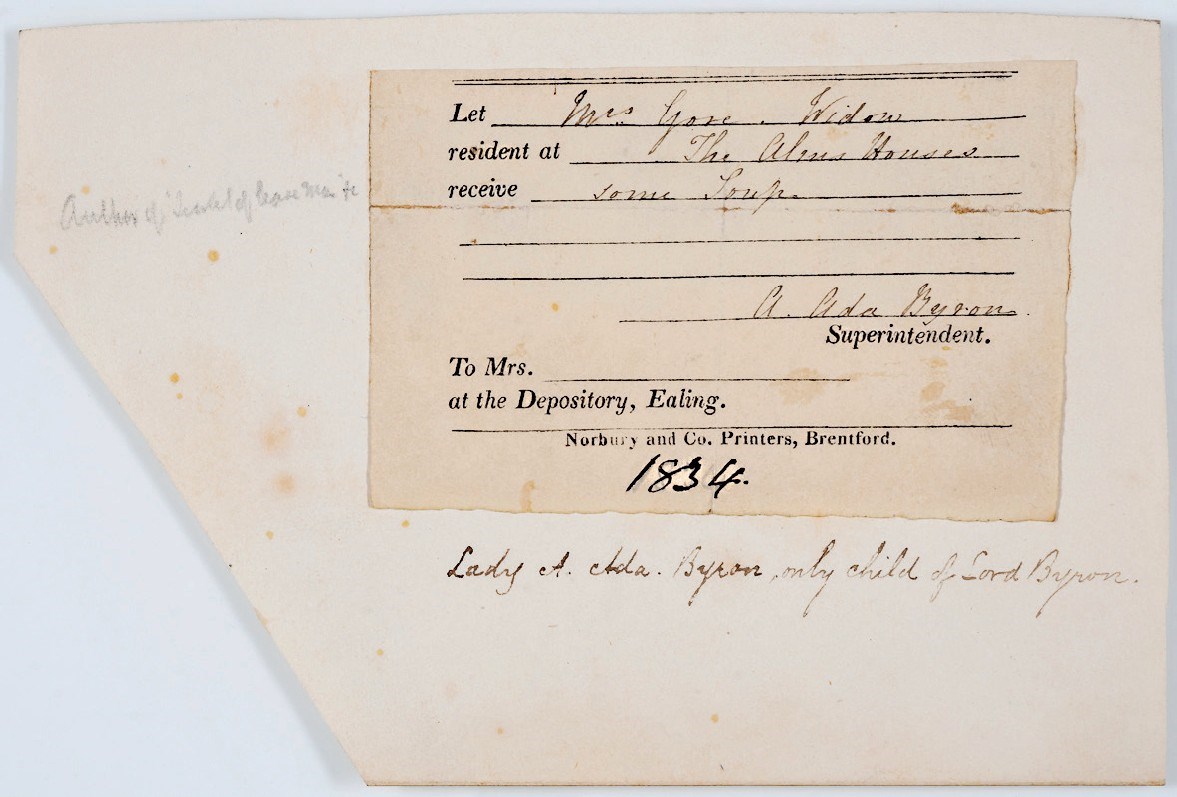 Let Mrs Gore. Widow
resident at The Alms Houses
receive some Soup.
A. Ada Byron
Superintendent.
To Mrs.
at the Depository, Ealing.
Norbury and Co. Printers, Brentford.
1834.
Lady A. Ada. Byron, only child of Lord Byron.
Author of